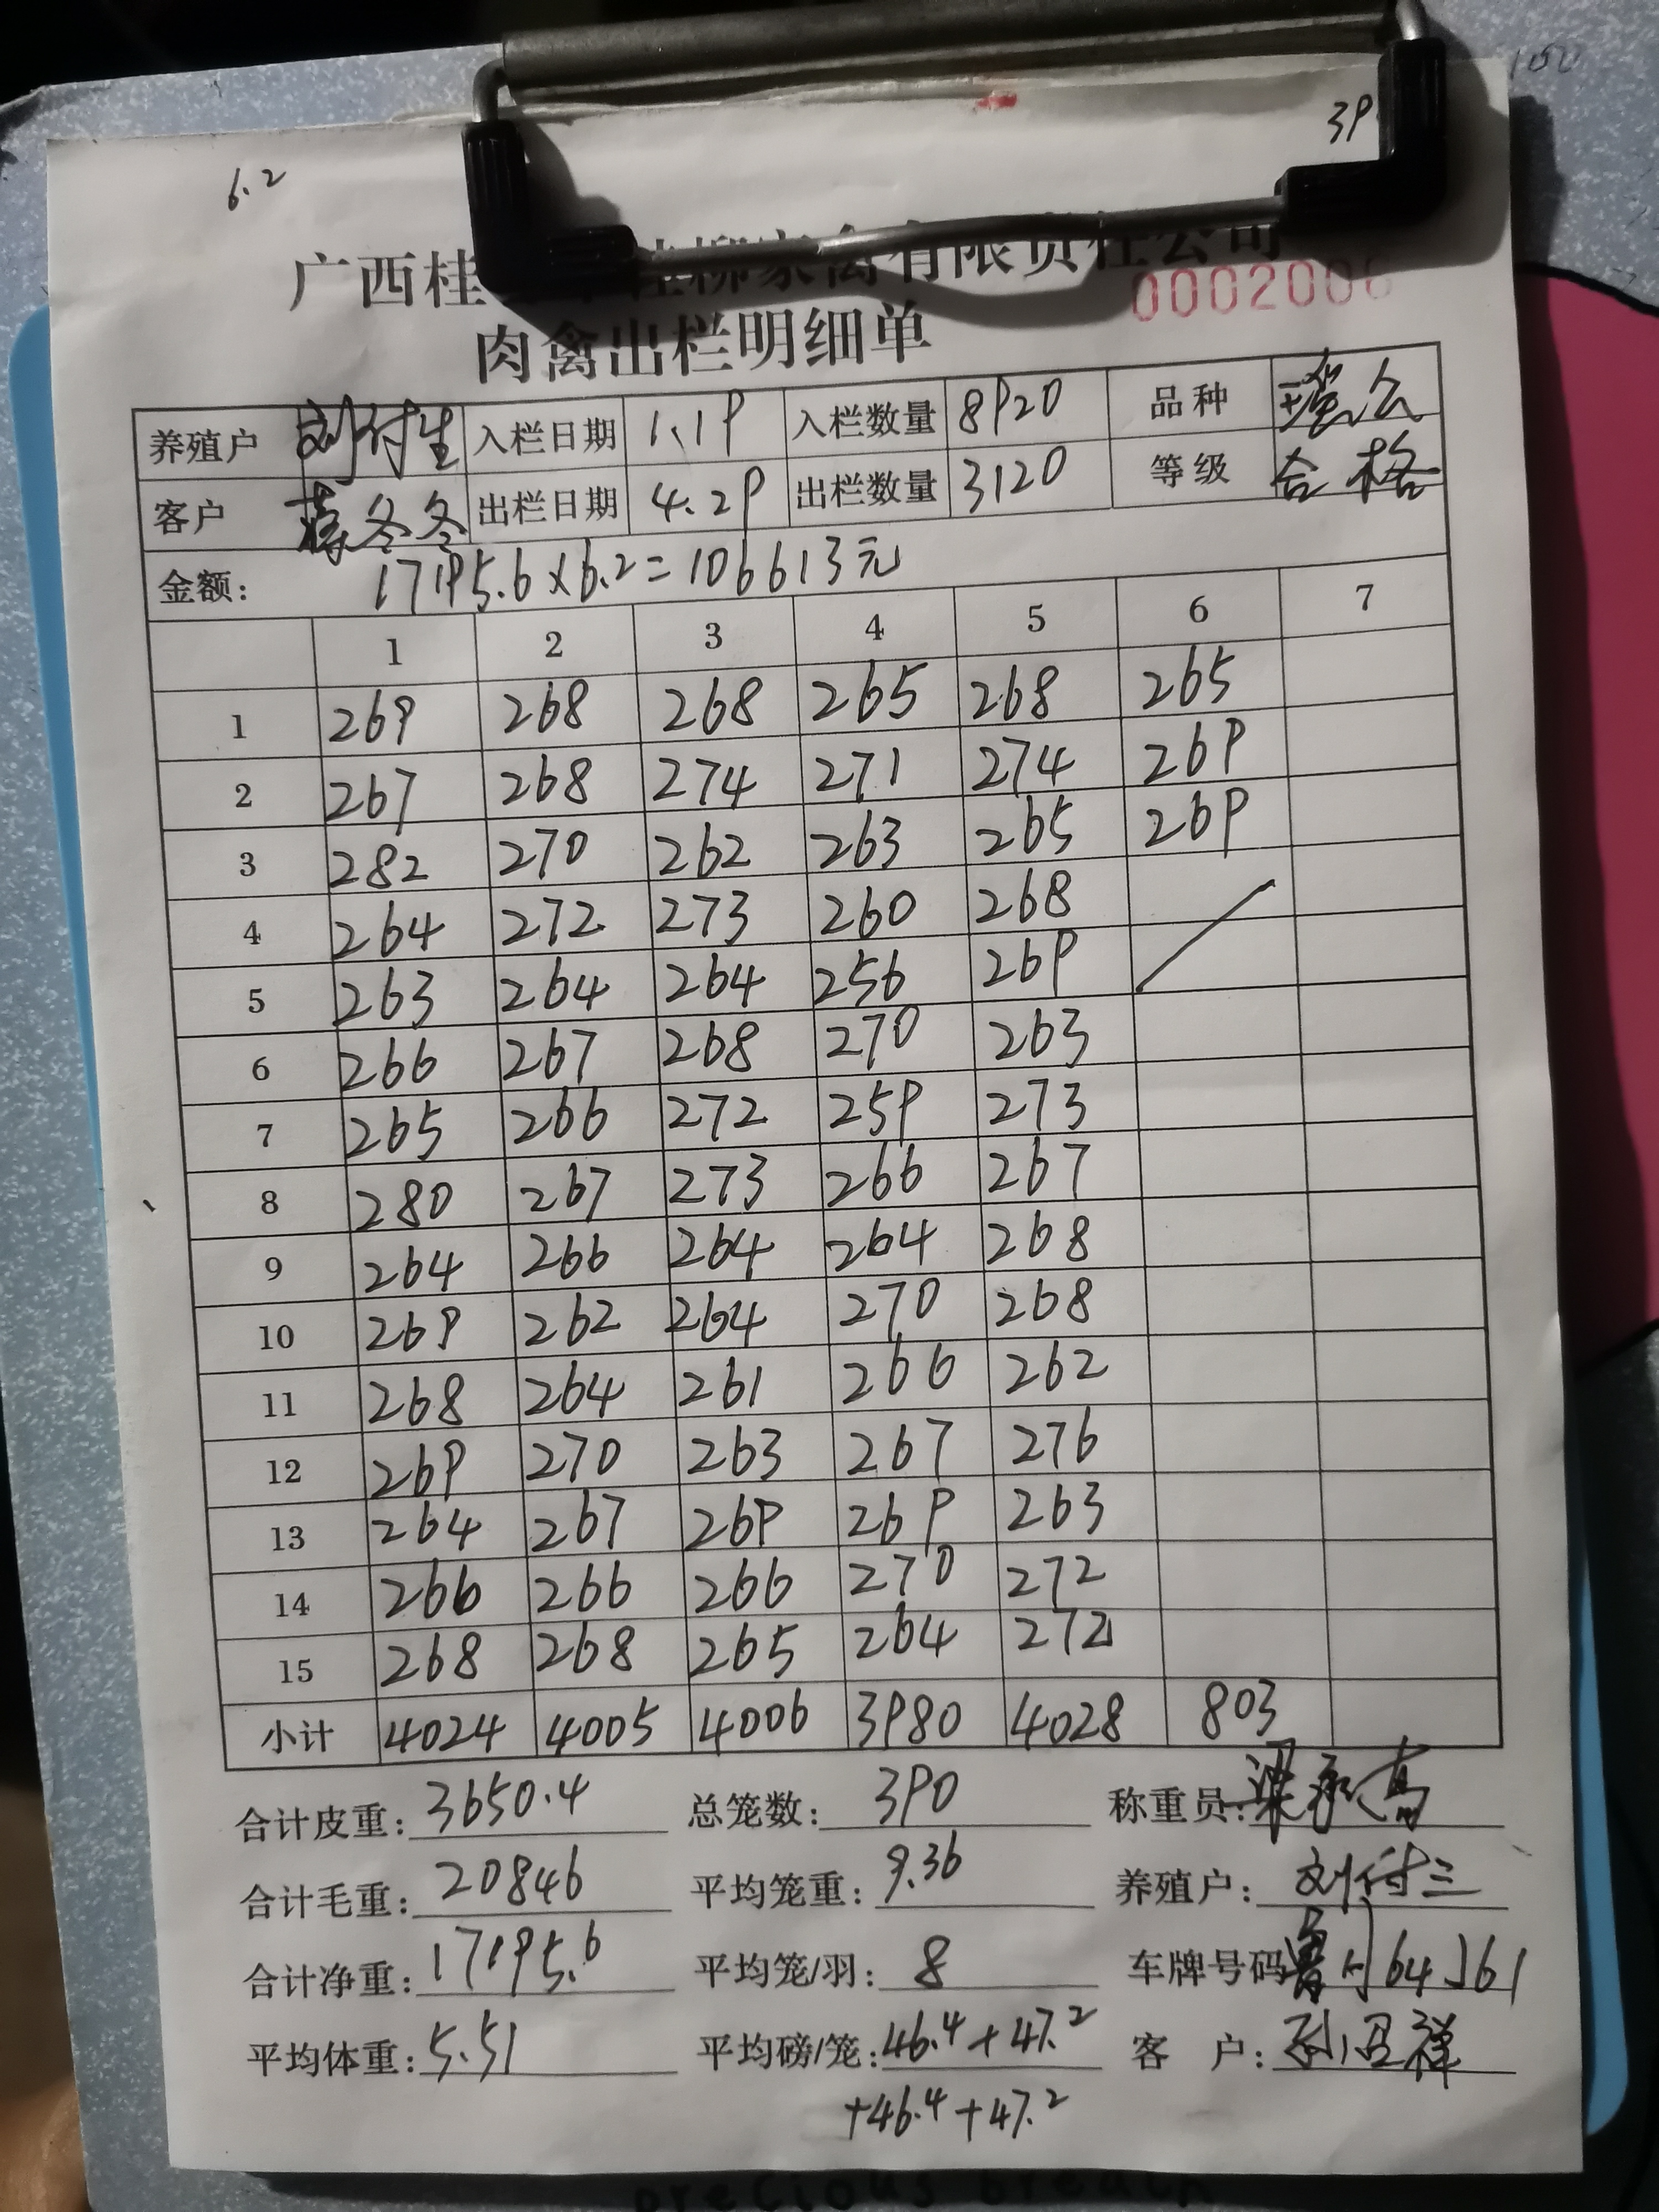 39
6.2
广西桂柳家禽有限责任公司
0002006
肉禽出栏明细单
养殖户 刘付生 入栏日期 1.19 入栏数量 8920 品种
客户 冬冬 出栏日期 4.29 出栏数量 3120 等级 合格
金额: 17195.6×6.2=106613元
1 2 3 4 5 6 7
1 269 268 268 265 268 265
2 267 268 274 271 274 269
3 282 270 262 263 265 269
4 264 272 273 260 268
5 263 264 264 256 269
6 266 267 268 270 263
7 265 266 272 259 273
8 280 267 273 266 267
9 264 266 264 264 268
10 269 262 264 270 268
11 268 264 261 266 262
12 269 270 263 267 276
13 264 267 269 269 263
14 266 266 266 270 272
15 268 268 265 264 272
小计 4024 4005 4006 3980 4028 803
合计皮重: 3650.4 总笼数: 390 称重员: 梁承高
合计毛重: 20846 平均笼重: 9.36 养殖户: 刘付三
合计净重: 17195.6 平均笼/羽: 8 车牌号码
平均体重: 5.51 平均磅/笼: 46.4+47.2 客 户:
+46.4+47.2
precious breach